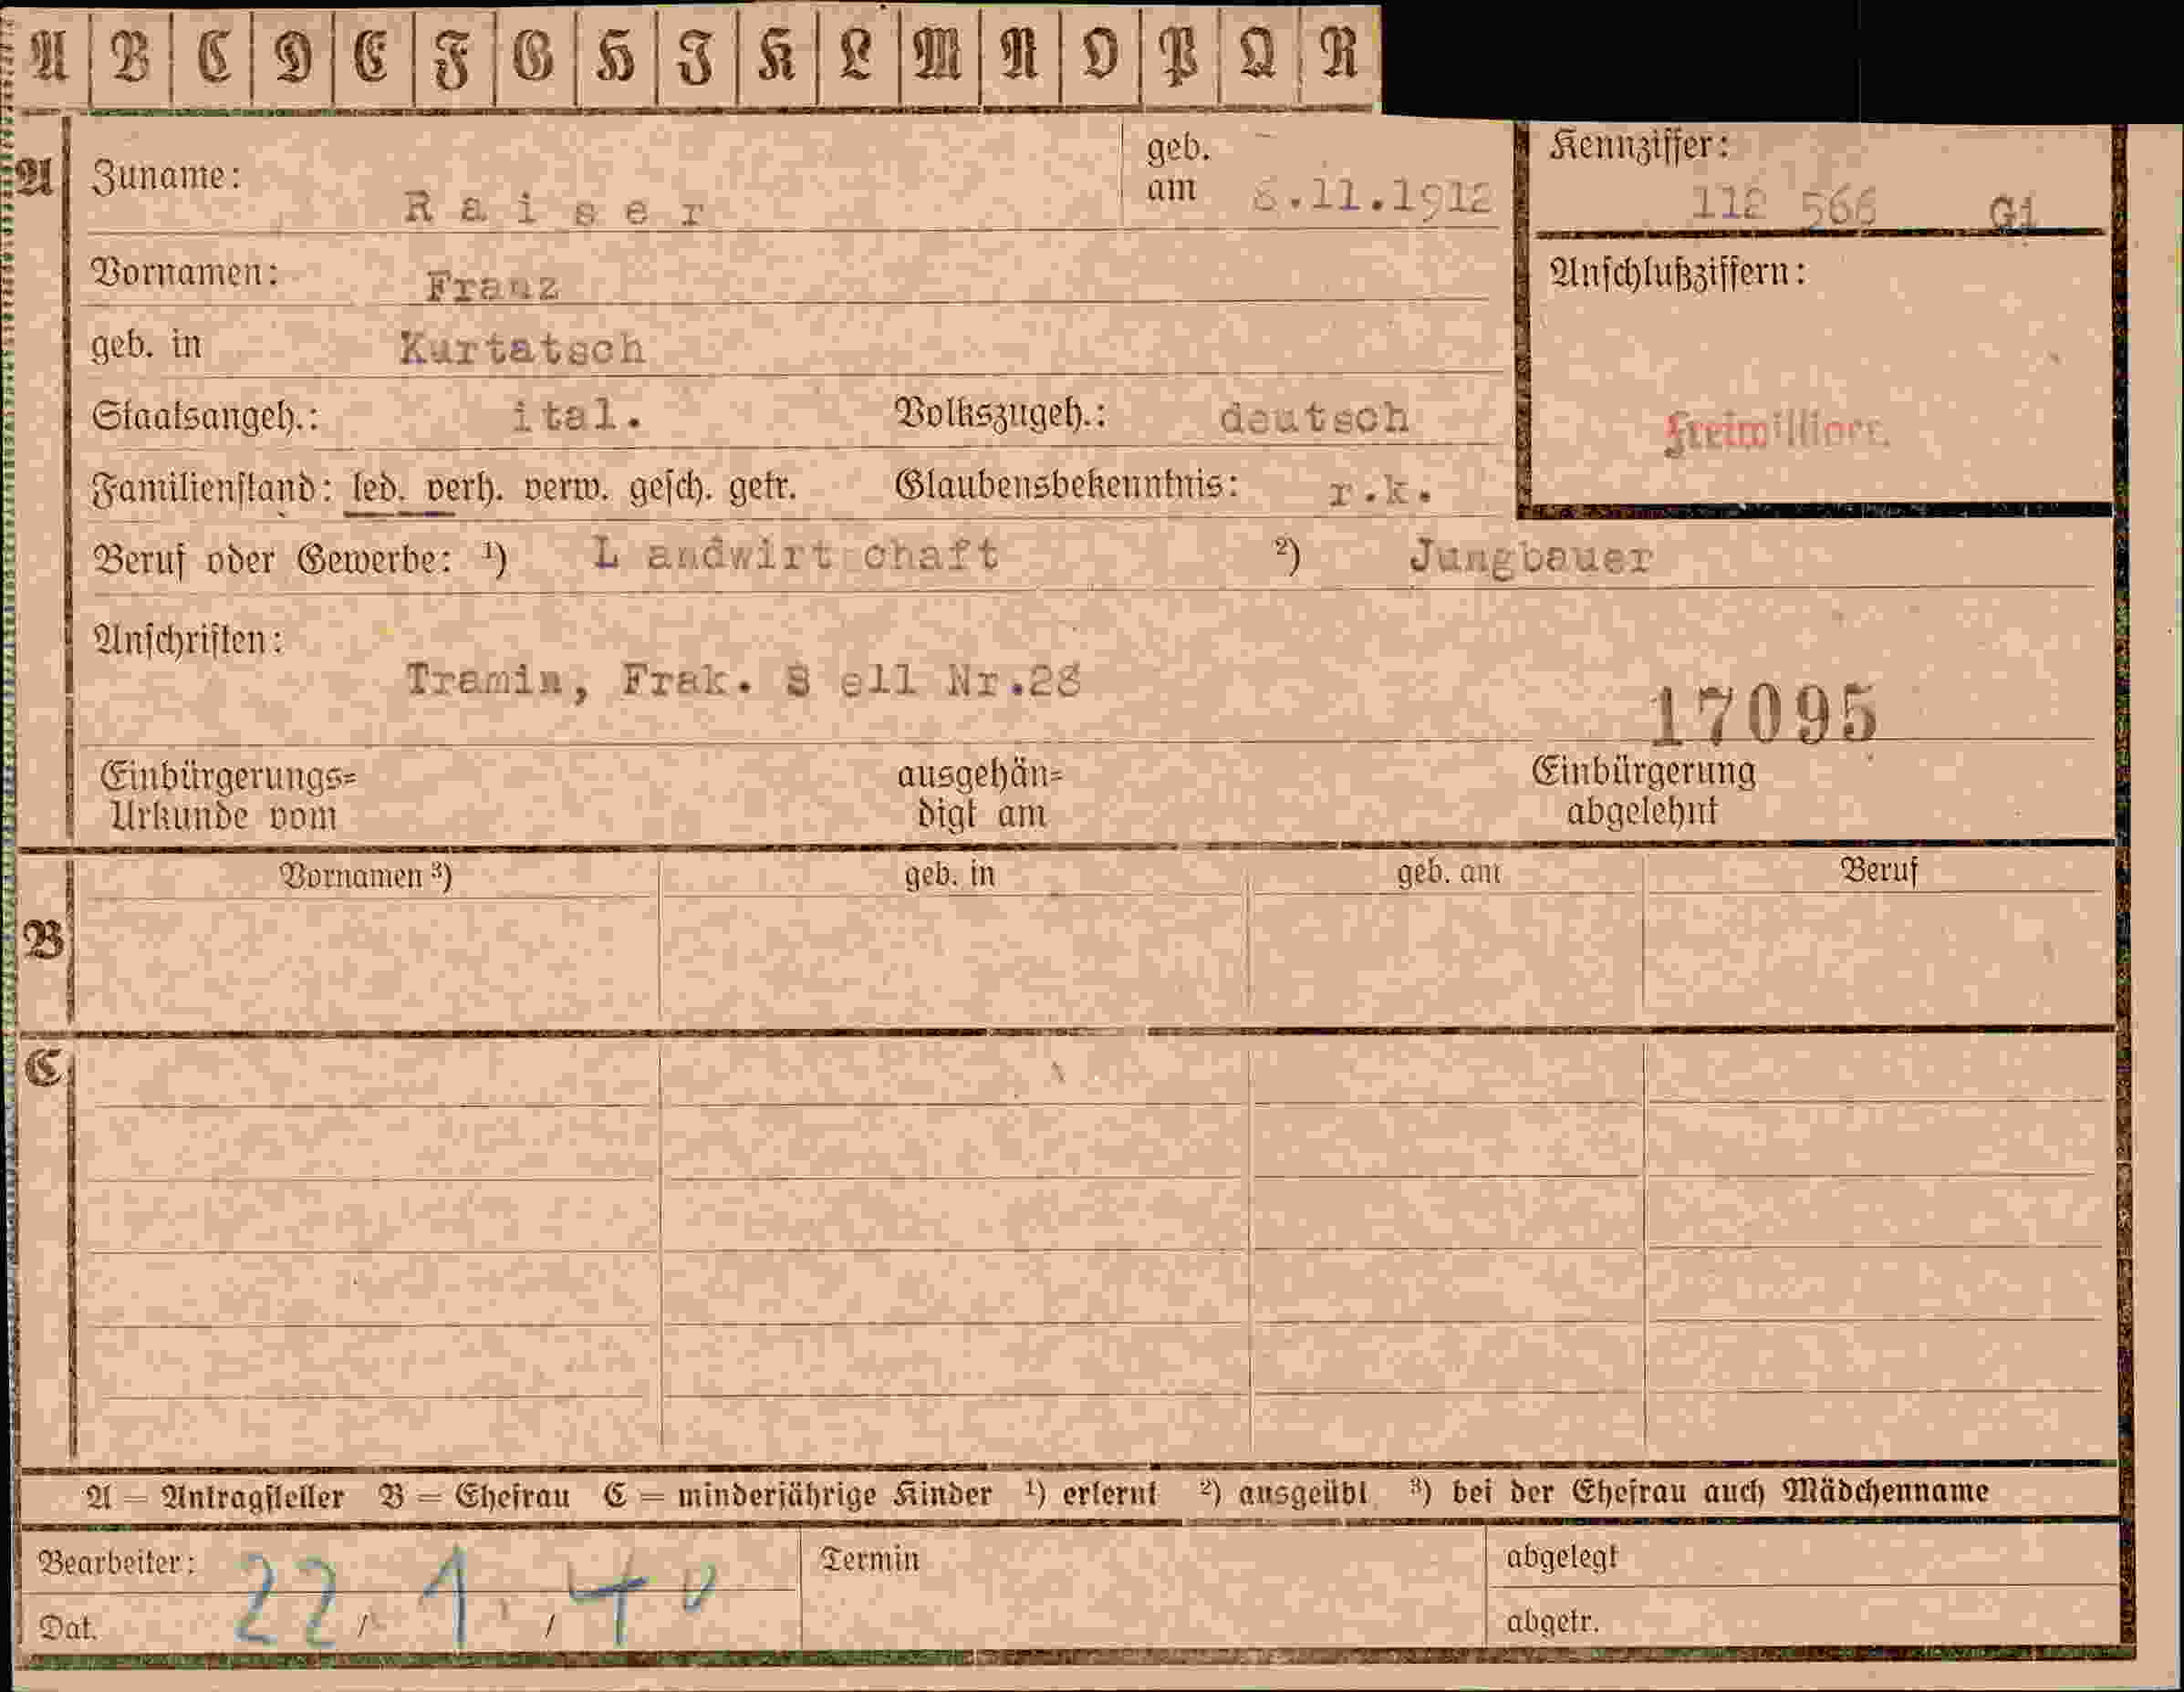 A B C D E F G H I K L M N O P Q R
A Zuname: Raiser geb. am 6.11.1912 Kennziffer: 112 566 Gi
Vornamen: Franz Anschlußziffern:
geb. in Kurtatsch
Staatsangeh.: ital. Volkszugeh.: deutsch
Familienstand: led. verh. verw. gesch. getr. Glaubensbekenntnis: r.k.
Beruf oder Gewerbe: ¹) L andwirt chaft ²) Jungbauer
Anschriften:
Tramin, Frak. S ell Nr.28
17095
Einbürgerungs= Urkunde vom ausgehän= digt am Einbürgerung abgelehnt
B Vornamen ³) geb. in geb. am Beruf
C
A = Antragsteller B = Ehefrau C = minderjährige Kinder ¹) erlernt ²) ausgeübt ³) bei der Ehefrau auch Mädchenname
Bearbeiter: Termin abgelegt
Dat. 22 / 1 / 40 abgetr.